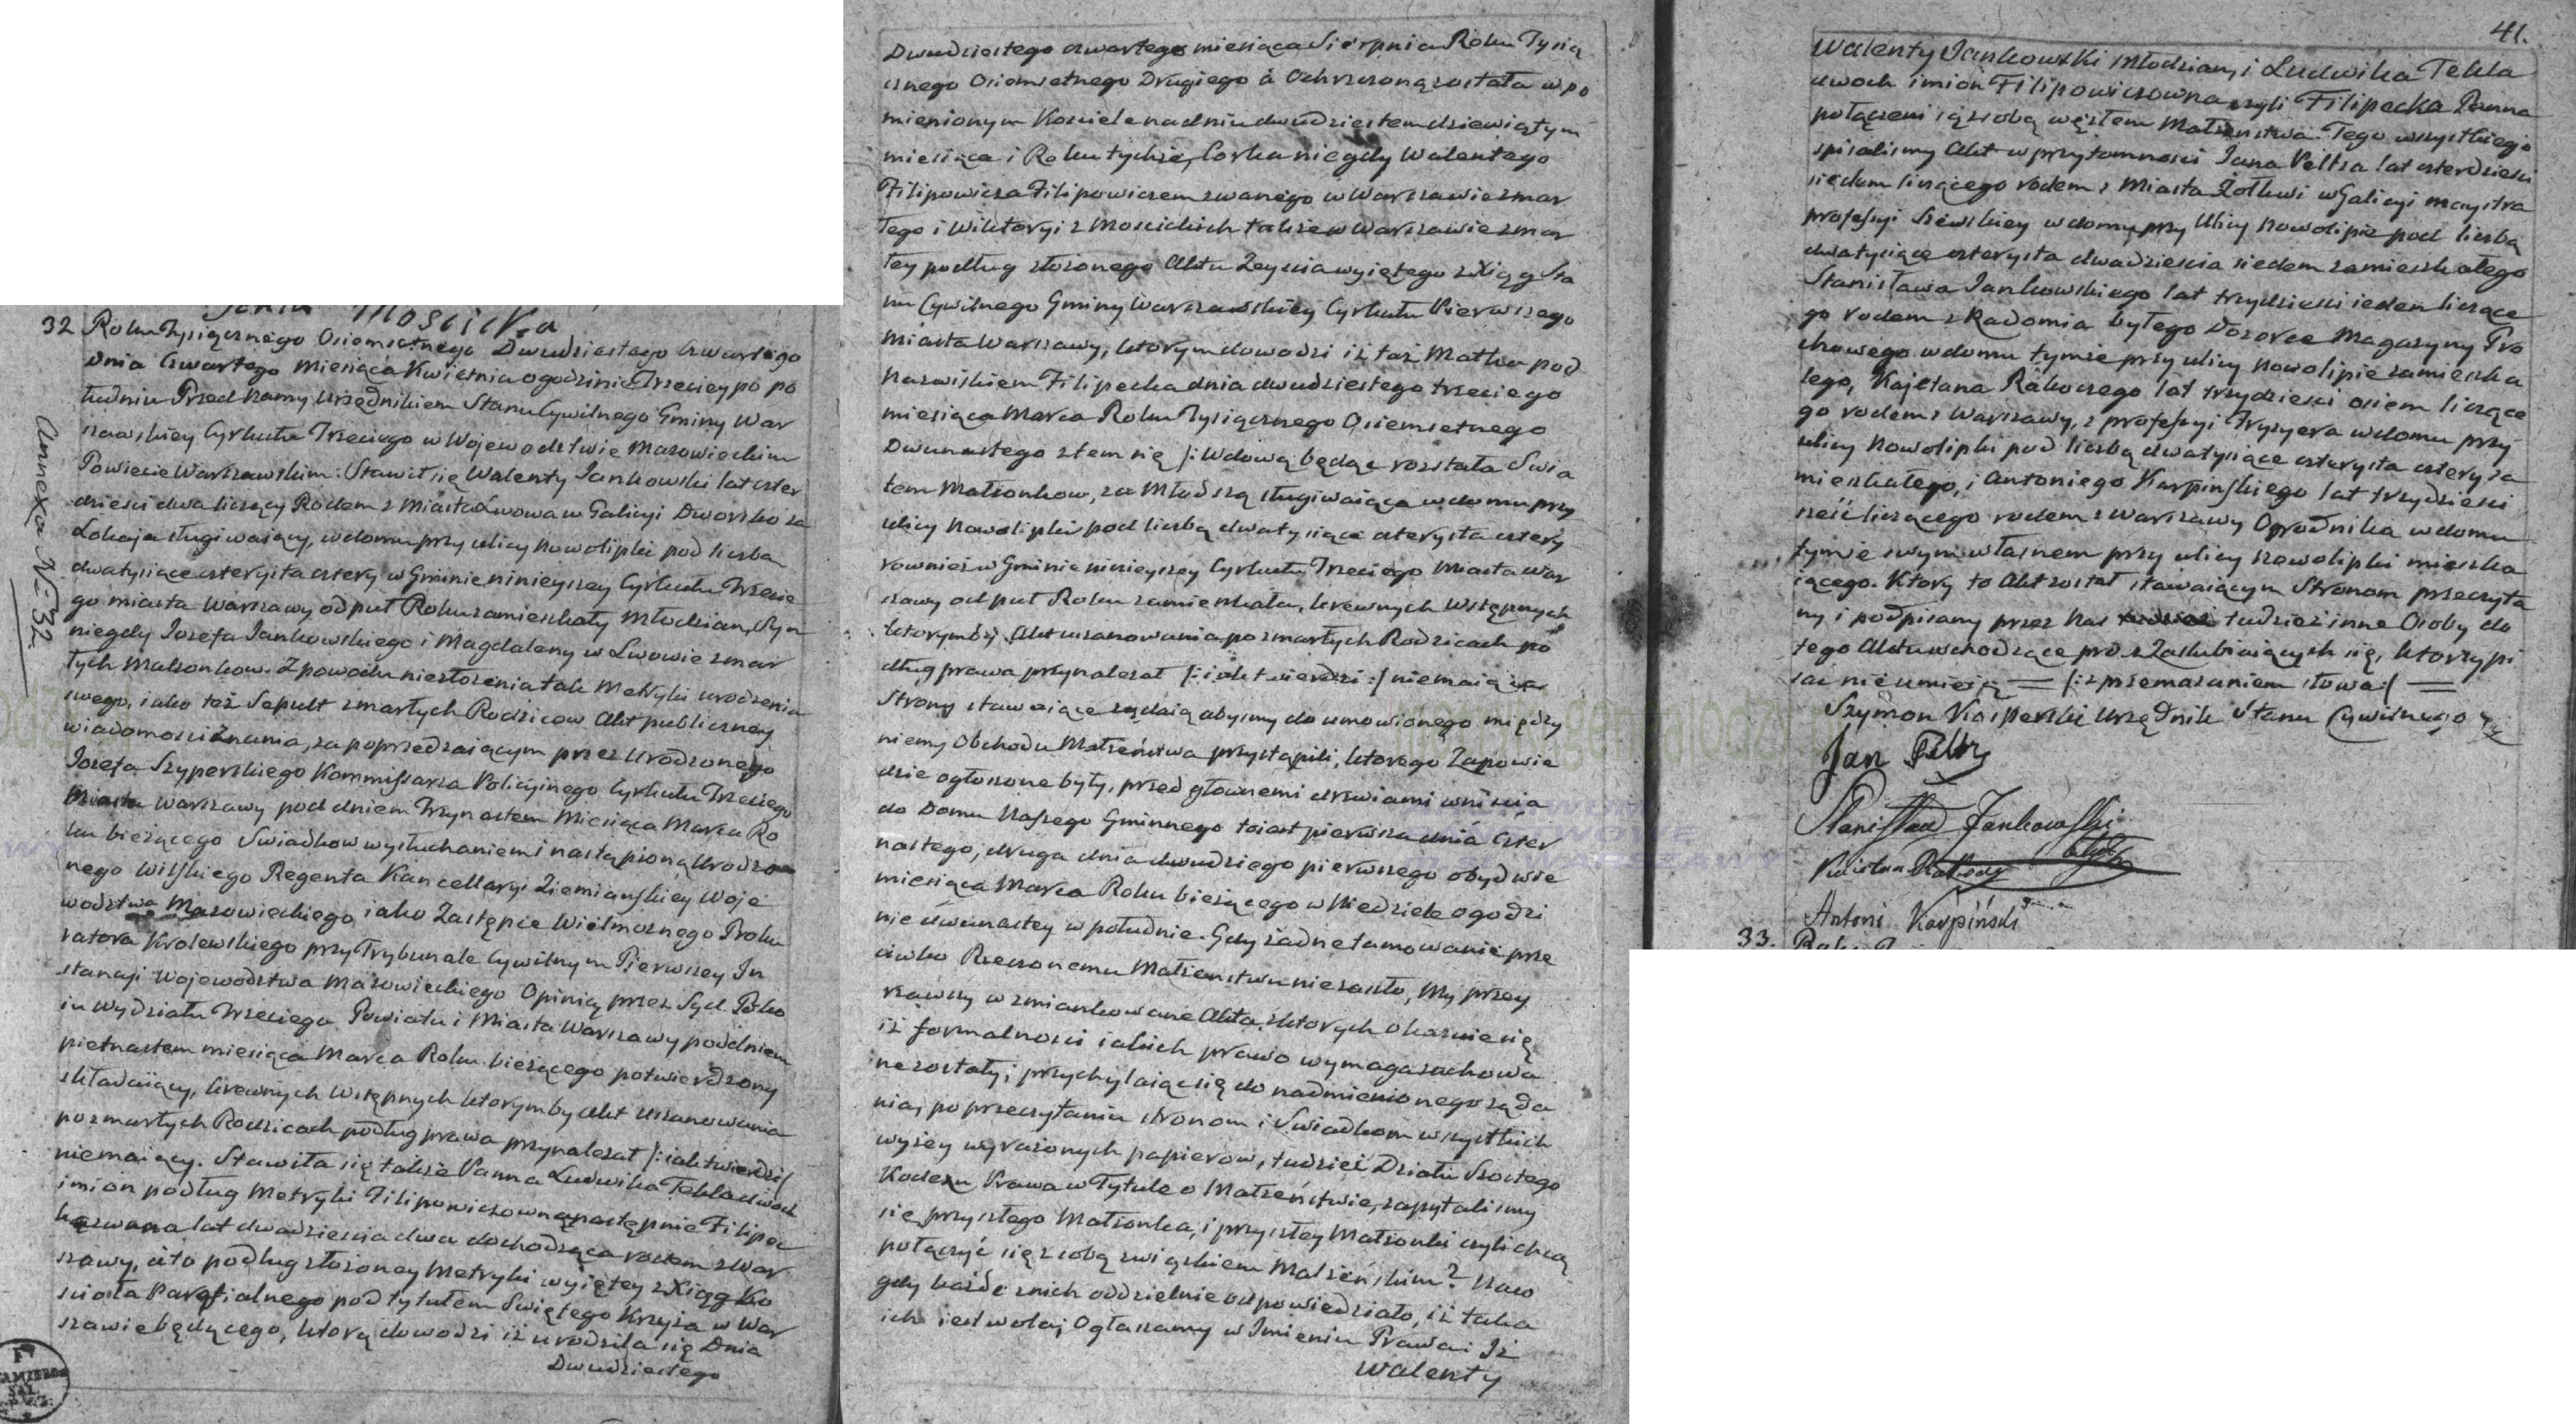 32 Roku Tysiącznego Ośiemsetnego Dwudziestego Czwartego
Dnia Czwartego Miesiąca Kwietnia o godzinie Trzeciey po po
łudniu Przed Namy Urzędnikiem Stanu Cywilnego Gminy War
szawskiey Cyrkułu Trzeciego w Woiewodztwie Mazowieckim
Powiecie Warszawskim. Stawił się Walenty Jankowski lat czter
dzieści dwa liczący Rodem z Miasta Lwowa w Galicyi Dworsko za
Lokaja sługiwaiący, w domu przy ulicy Nowolipki pod liczba
dwatysiące czterysta cztery w Gminie ninieyszey Cyrkułu Trzecie
go miasta Warszawy od puł Roku zamieszkały Młodzian, Syn
niegdy Jozefa Jankowskiego i Magdaleny w Lwowie zmar
łych Małżonkow. Z powodu niezłożenia tak Metryki urodzenia
swego, iako też Sepult zmarłych Rodzicow Akt publiczney
wiadomości Znania, za poprzedzaiącym przez Urodzonego
Jozefa Szyperskiego Kommissarza Policyinego Cyrkułu Trzeciego
Miasta Warszawy pod dniem Trzynastem Miesiąca Marca Ro
ku bieżącego Swiadkow wysłuchaniem i nastąpioną Urodzo
nego Wilskiego Regenta Kancellaryi Ziemiańskiey Woje
wodztwa Mazowieckiego iako Zastępce Wielmożnego Proku
ratora Krolewskiego przy Trybunale Cywilnym Pierwszey In
stancyi Wojewodztwa Mazowieckiego Opinią przez Sąd Poko
iu Wydziału Trzeciego Powiatu i Miasta Warszawy pod dniem
pietnastem miesiąca Marca Roku bieżącego potwierdzony
składaiący, krewnych Wstępnych ktorymby Akt uszanowania
po zmarłych Rodzicach podług prawa przynależał /: iak twierdzi :/
niemaiący. Stawiła się także Panna Ludwika Tekla dwoch
imion podług Metryki Filipowiczowna następnie Filipec
ka zwana lat dwadzieścia dwa dochodząca rodem z War
szawy, a to podług złożoney Metryki wyiętey z Xiąg Ko
ścioła Parafialnego pod tytułem Swiętego Krzyża w War
szawie będącego, ktorą dowodzi iż urodziła się Dnia
Dwudziestego
Annexa No 32.
Dwudziestego czwartego miesiąca Sierpnia Roku Tysią
cznego Osiemsetnego Drugiego a Ochrzczoną została w po
mienionym Kościele na dniu dwudziestem dziewiątym
miesiąca i Roku tychże, Corka niegdy Walentego
Filipowicza Filipowiczem zwanego w Warszawie zmar
łego i Wiktoryi z Mościckich także w Warszawie zmar
łey podług złożonego Aktu Zeyścia wyiętego z Xiąg Sta
nu Cywilnego Gminy Warszawskiey Cyrkułu Pierwszego
Miasta Warszawy, ktorym dowodzi iż taż Matka pod
Nazwiskiem Filipecka dnia dwudziestego trzeciego
miesiąca Marca Roku Tysiącznego Osiemsetnego
Dwunastego z tem się /: Wdową będąc rozstała Swia
tem Małżonkow, za Młodszą sługiwaiąca w domu przy
ulicy Nowolipki pod liczbą dwatysiące czterysta cztery
rownież w Gminie ninieyszey Cyrkułu Trzeciego Miasta War
szawy od puł Roku zamieszkała, krewnych Wstępnych
ktorymby Akt uszanowania po zmarłych Rodzicach po
dług prawa przynależał /: iak twierdzi :/ niemaiąca
Strony stawaiące żądaią abysmy do umowionego między
niemy Obchodu Małżeństwa przystąpili, ktorego Zapowie
dzie ogłoszone były, przed głownemi drzwiami wniścia
do Domu Naszego Gminnego to iest pierwsza dnia Czter
nastego, druga dnia dwudziego pierwszego obydwie
miesiąca Marca Roku bieżącego w Niedziele o godzi
nie dwunastey w południe. Gdy żadne tamowanie prze
ciwko Rzeczonemu Małżeństwu nie zaszło, My przey
rzawszy wzmiankowane Akta, z ktorych okazuie się
iż formalności iakich prawo wymaga zachowa
ne zostały; przychylaiąc się do nadmienionego żąda
nia, po przeczytaniu stronom i Swiadkom wszystkich
wyżey wyrażonych papierow, tudzież Działu Szostego
Kodexu Prawa w Tytule o Małżeństwie, zapytalismy
się przyszłego Małżonka, i przyszłey Małżonki czyli chcą
połączyć się z sobą związkiem Małżeńskim? Naco
gdy każde z nich oddzielnie odpowiedziało, iż taka
ich iest wola; Ogłaszamy w Imieniu Prawa: Iż
Walenty
41.
Walenty Jankowski Młodzian, i Ludwika Tekla
dwoch imion Filipowiczowna czyli Filipecka Panna
połączeni są z sobą węzłem Małżeństwa. Tego wszystkiego
spisalismy Akt w przytomności Jana Peltza lat czterdzieści
siedem liczącego rodem z Miasta Żołkwi w Galicyi maystra
professyi Szewskiey w domu przy Ulicy Nowolipie pod liczbą
dwatysiące czterysta dwadzieścia siedem zamieszkałego
Stanisława Jankowskiego lat trzydzieści ieden liczące
go rodem z Radomia byłego Dozorce Magazynu Pro
chowego w domu tymże przy ulicy Nowolipie zamieszka
łego, Kajetana Rakoczego lat trzydzieści osiem liczące
go rodem z Warszawy, z professyi Fryzyera w domu przy
ulicy Nowolipki pod liczbą dwatysiące czterysta cztery za
mieszkałego, i Antoniego Karpińskiego lat trzydzieści
sześć liczącego rodem z Warszawy Ogrodnika w domu
tymże swym własnem przy ulicy Nowolipki mieszka
iącego. Ktory to Akt został stawaiącym Stronom przeczyta
ny i podpisany przez Nas tudzież inne Osoby do
tego Aktu wchodzące procz Zaslubiaiących się, ktorzy pi
sać nie umieią = /: z przemazaniem słowa :/ =
Szymon Kasperski Urzędnik Stanu Cywilnego
Jan Peltz
Stanisław Jankowski
Kaietan Rakoczy
Antoni Karpiński
33.